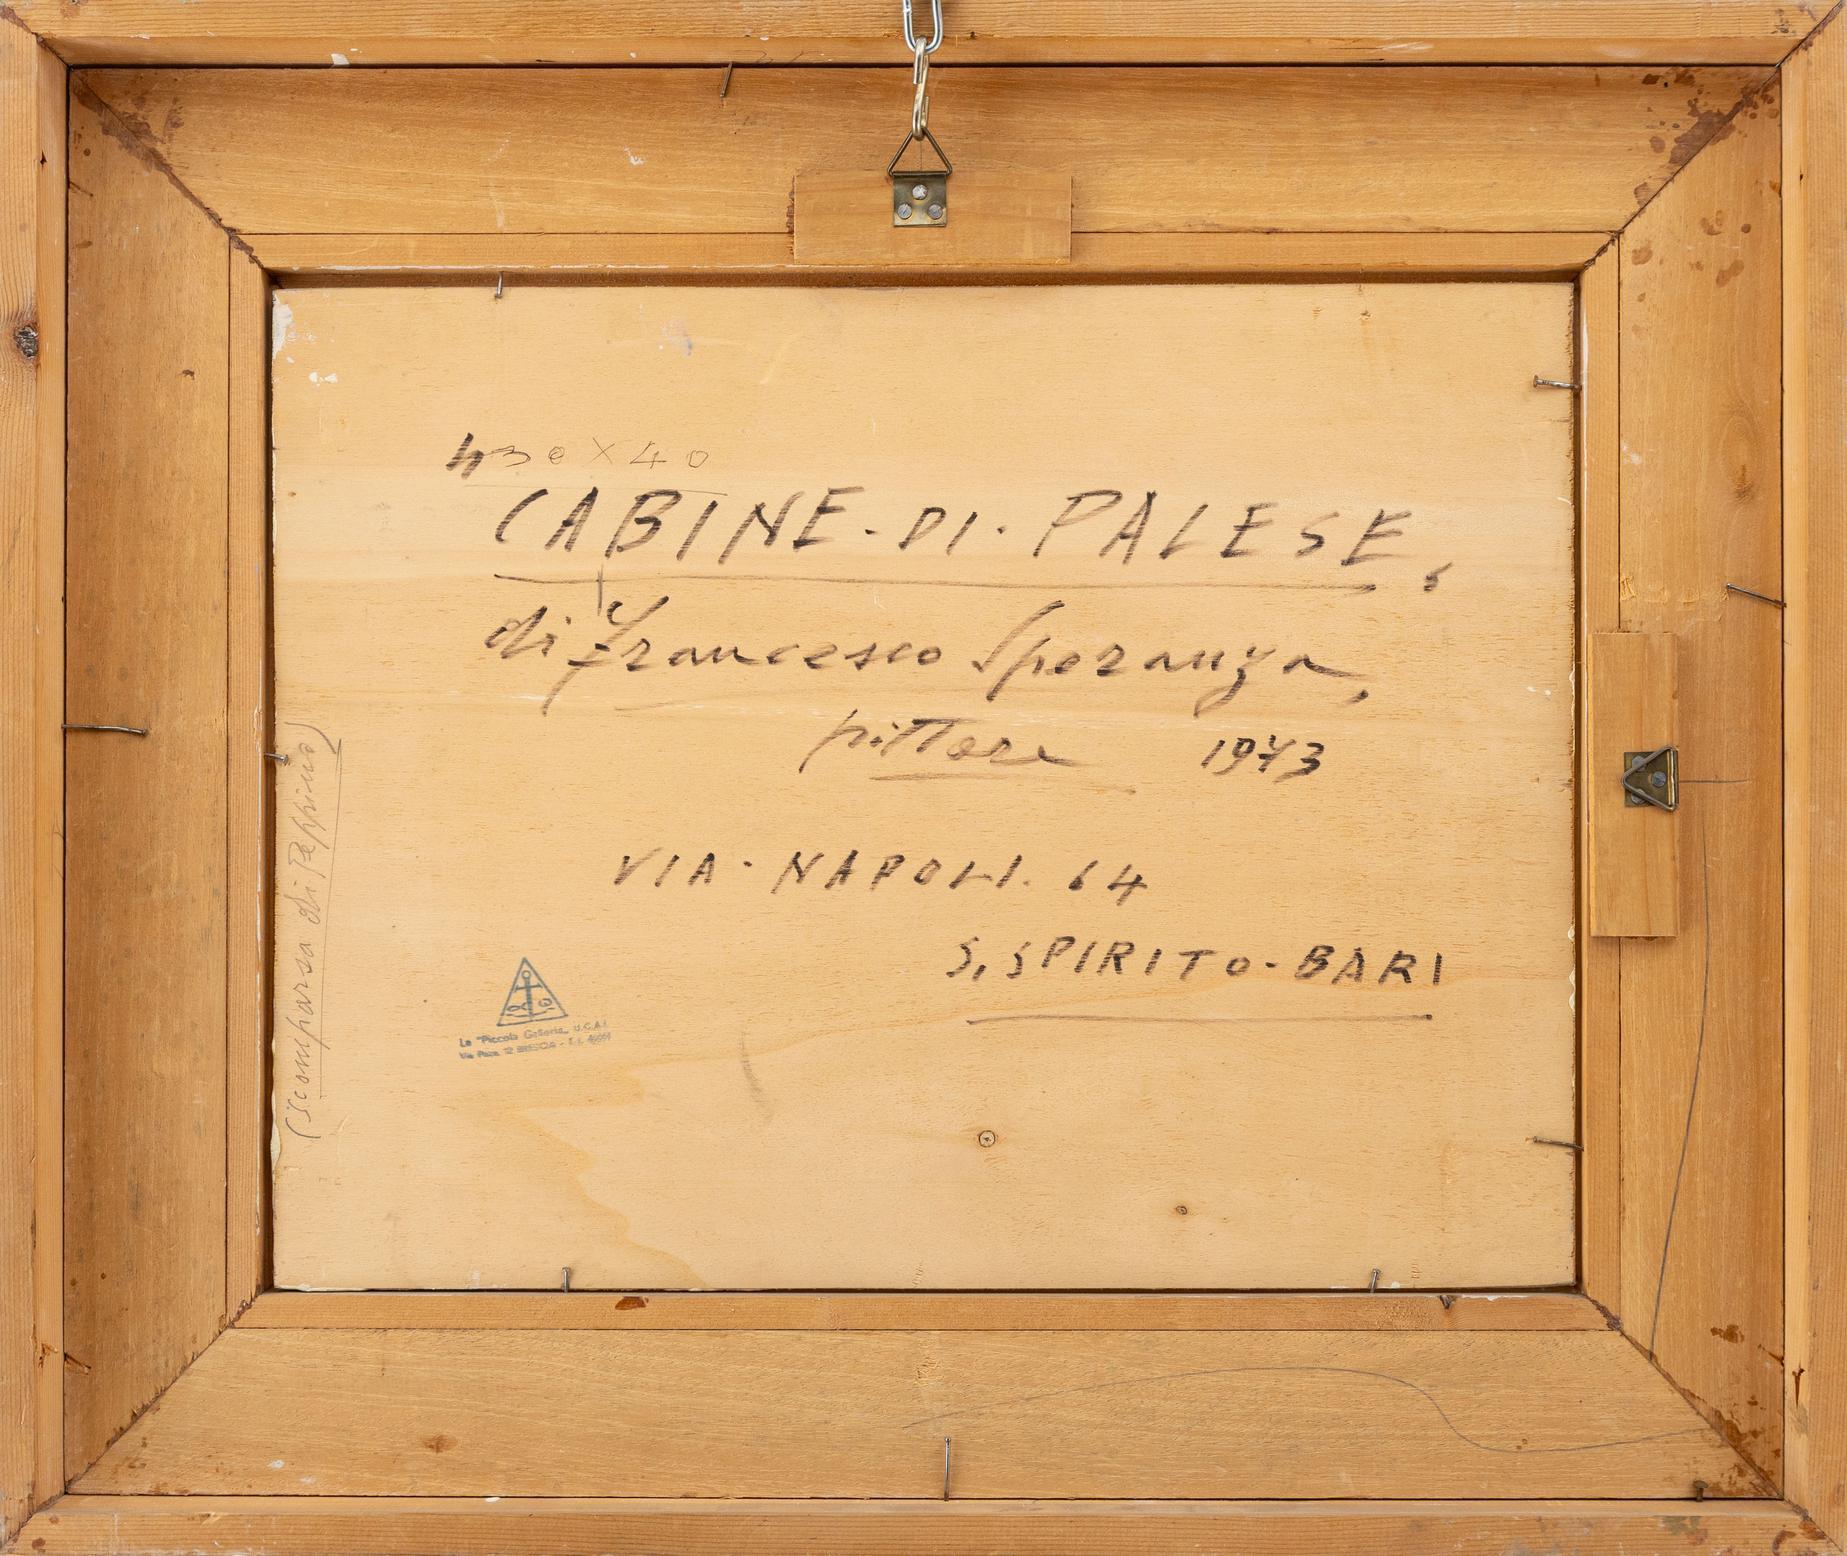 30 X 40
CABINE · DI · PALESE,
di Francesco Speranza,
pittore 1973
VIA · NAPOLI. 64
S. SPIRITO - BARI
(Scomparsa di Peppino)
La "Piccola Galleria„ U.C.A.I.
Via Pace, 12 BRESCIA -